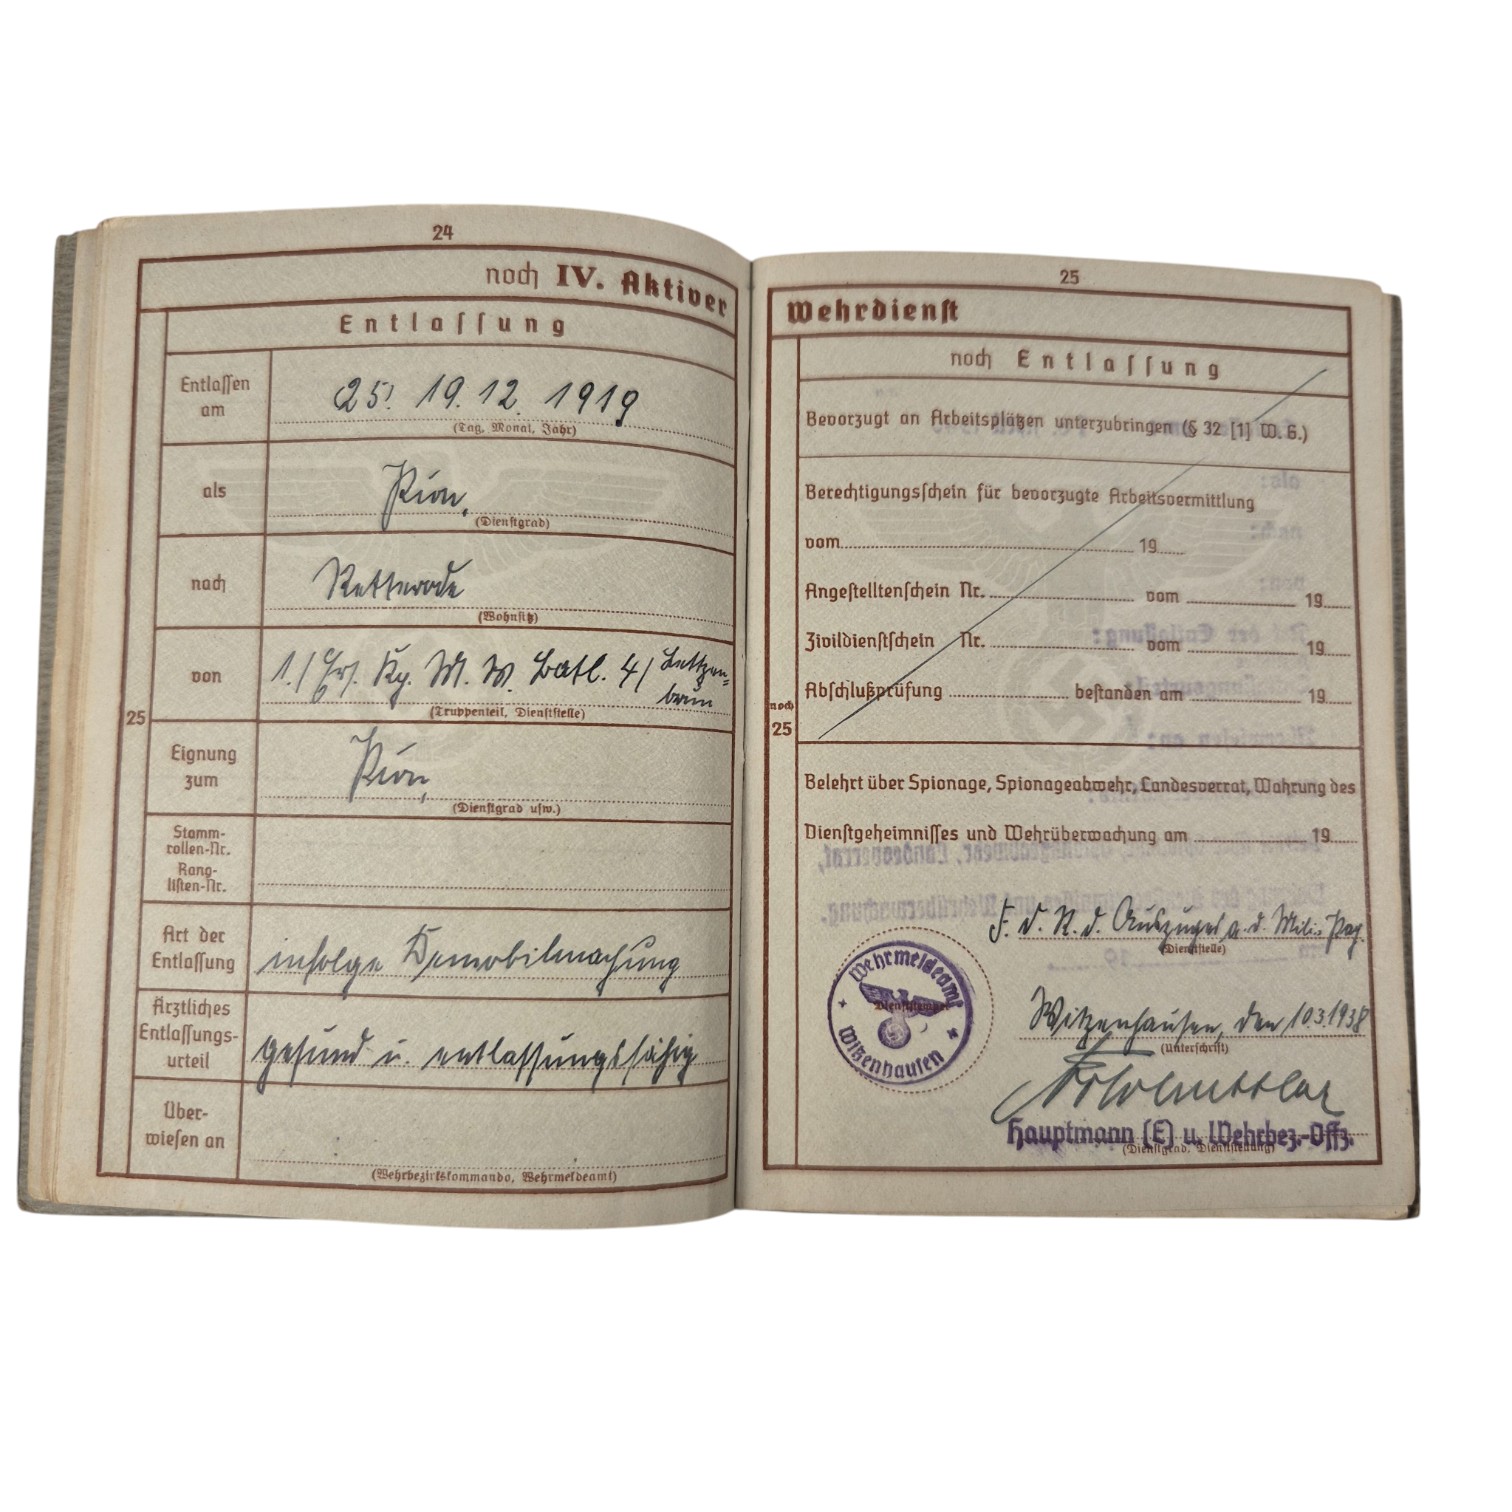 24
noch IV. Aktiver
Entlassung
Entlassen am
19. 12. 1919
(Tag, Monat, Jahr)
als
Pion.
(Dienstgrad)
nach
Retterode
(Wohnsitz)
von
1./Ers. Kp. M. W. Batl. 4/
(Truppenteil, Dienststelle)
25
Eignung zum
Pion.
(Dienstgrad usw.)
Stamm-
rollen-Nr.
Rang-
listen-Nr.
Art der
Entlassung
infolge Demobilmachung
Ärztliches
Entlassungs-
urteil
gesund u. entlassungsfähig
Über-
wiesen an
(Wehrbezirkskommando, Wehrmeldeamt)
25
Wehrdienst
noch Entlassung
Bevorzugt an Arbeitsplätzen unterzubringen (§ 32 [1] W. G.)
Berechtigungsschein für bevorzugte Arbeitsvermittlung
vom 19
Angestelltenschein Nr. vom 19
Zivildienstschein Nr. vom 19
Abschlußprüfung bestanden am 19
noch
25
Belehrt über Spionage, Spionageabwehr, Landesverrat, Wahrung des
Dienstgeheimnisses und Wehrüberwachung am 19
F. d. R. d. Auszuges a. d. Milit. Pap.
(Dienststelle)
Wehrmeldeamt
Dienststempel
Witzenhausen
Witzenhausen, den 10.3.1938
(Unterschrift)
Hauptmann (E) u. Wehrbez.-Offz.
(Dienstgrad, Dienststellung)